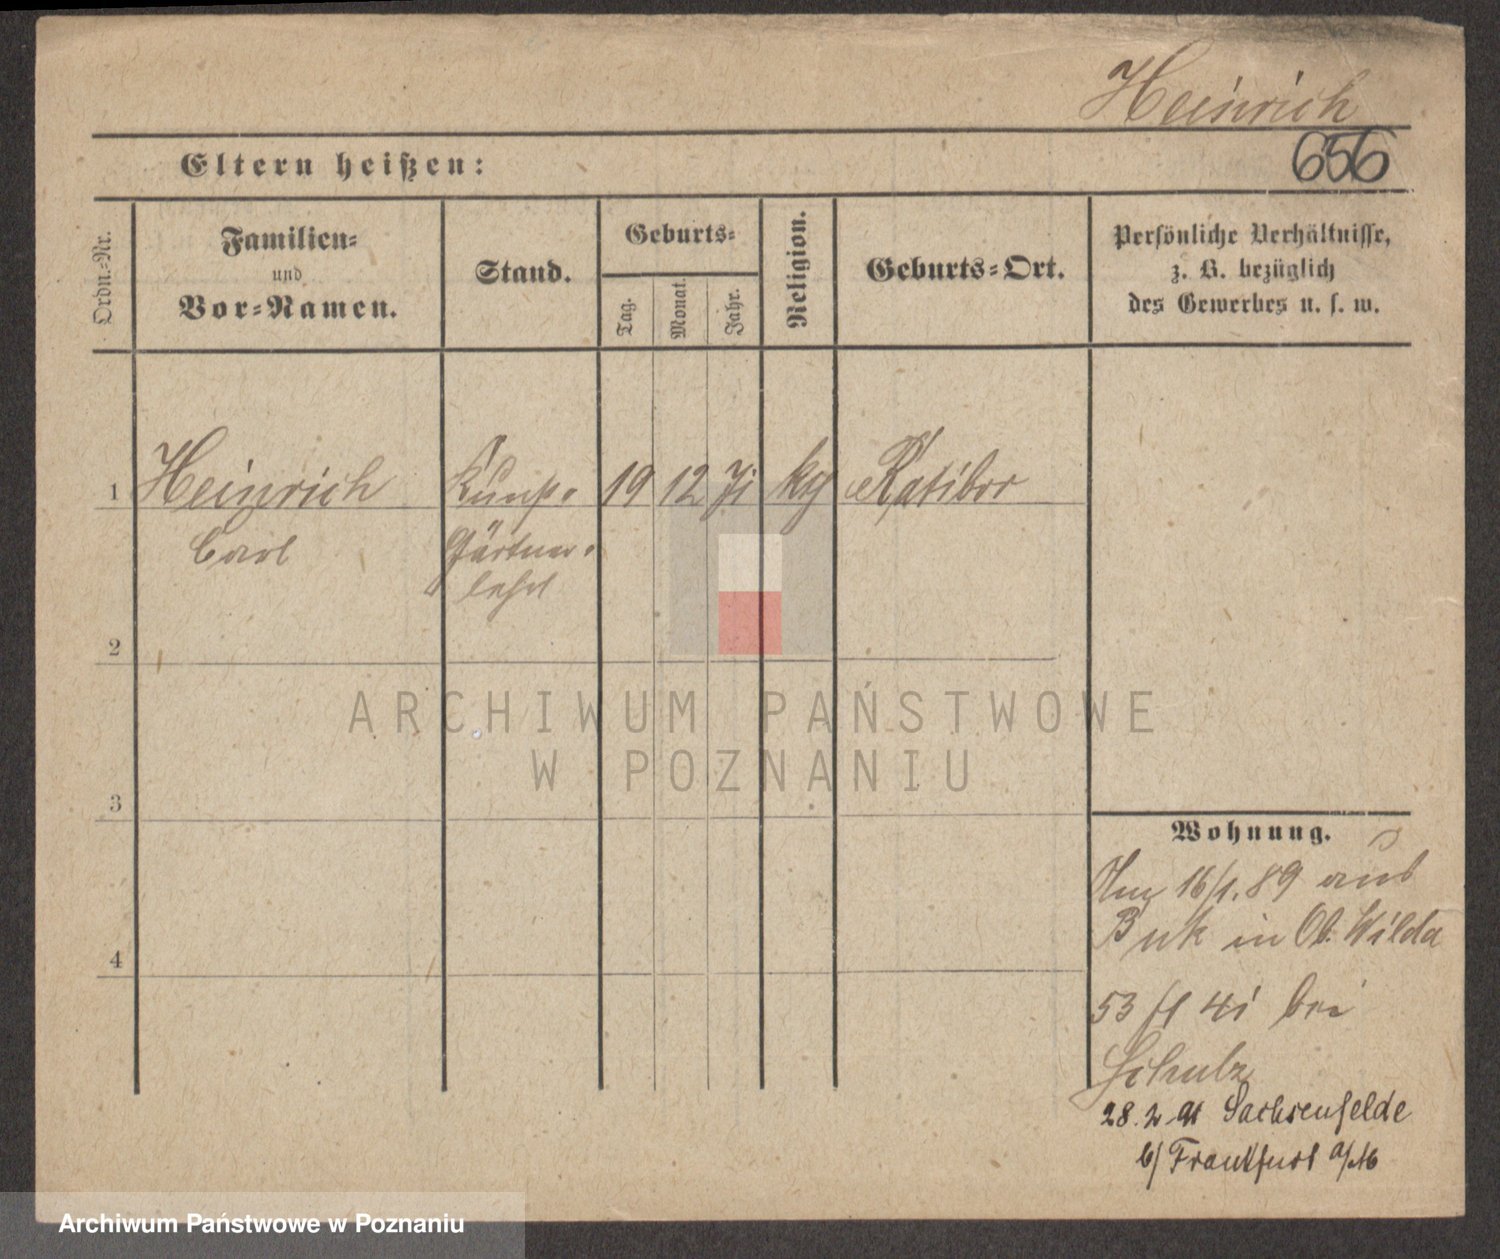 Heinrich
656
Eltern heißen:
Ordn.=Nr.
Familien=
und
Vor=Namen.
Stand.
Geburts=
Tag.
Monat.
Jahr.
Religion.
Geburts=Ort.
Persönliche Verhältnisse,
z. B. bezüglich
des Gewerbes u. s. w.
1 Heinrich 19 12 71 Ratibor
Carl Gärtner=
2
3
4
ARCHIWUM PAŃSTWOWE
W POZNANIU
Wohnung.
16/1. 89 aus
Buk in Ob. Wilda
53 bei
Schulz
28. 2. 91 Sachsenfelde
b/ Frankfurt a/M
Archiwum Państwowe w Poznaniu